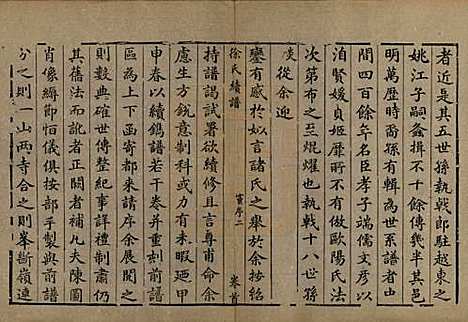 者近是其五世孫執戟郎駐越東之
姚江子嗣蕃揖不十餘傳幾半其邑
明萬歷時喬孫有輯為世系譜者由
間四百餘年名臣孝子端儒文彥以
洎賢媛貞姬靡所不有倣歐陽氏法
次第布之至焜燿也執戟十八世孫
從余迎
徐氏續譜
賓序二
卷首
鑾有感於姒言諸氏之舉於余按紹
持譜謁試署欲續修且言尊甫命余
慮生方銳意制科或力有未暇迺甲
申春以續鐫譜若干卷并重刻前譜
上下函寄都来請序余展閱之
則典確世傳整紀事詳禮制肅仍
其舊法而訛者闕者補凡夫陳圖
肖像縟節怕儀俱按部手製與前譜
分之則一山两寺合之則峯斷嶺連